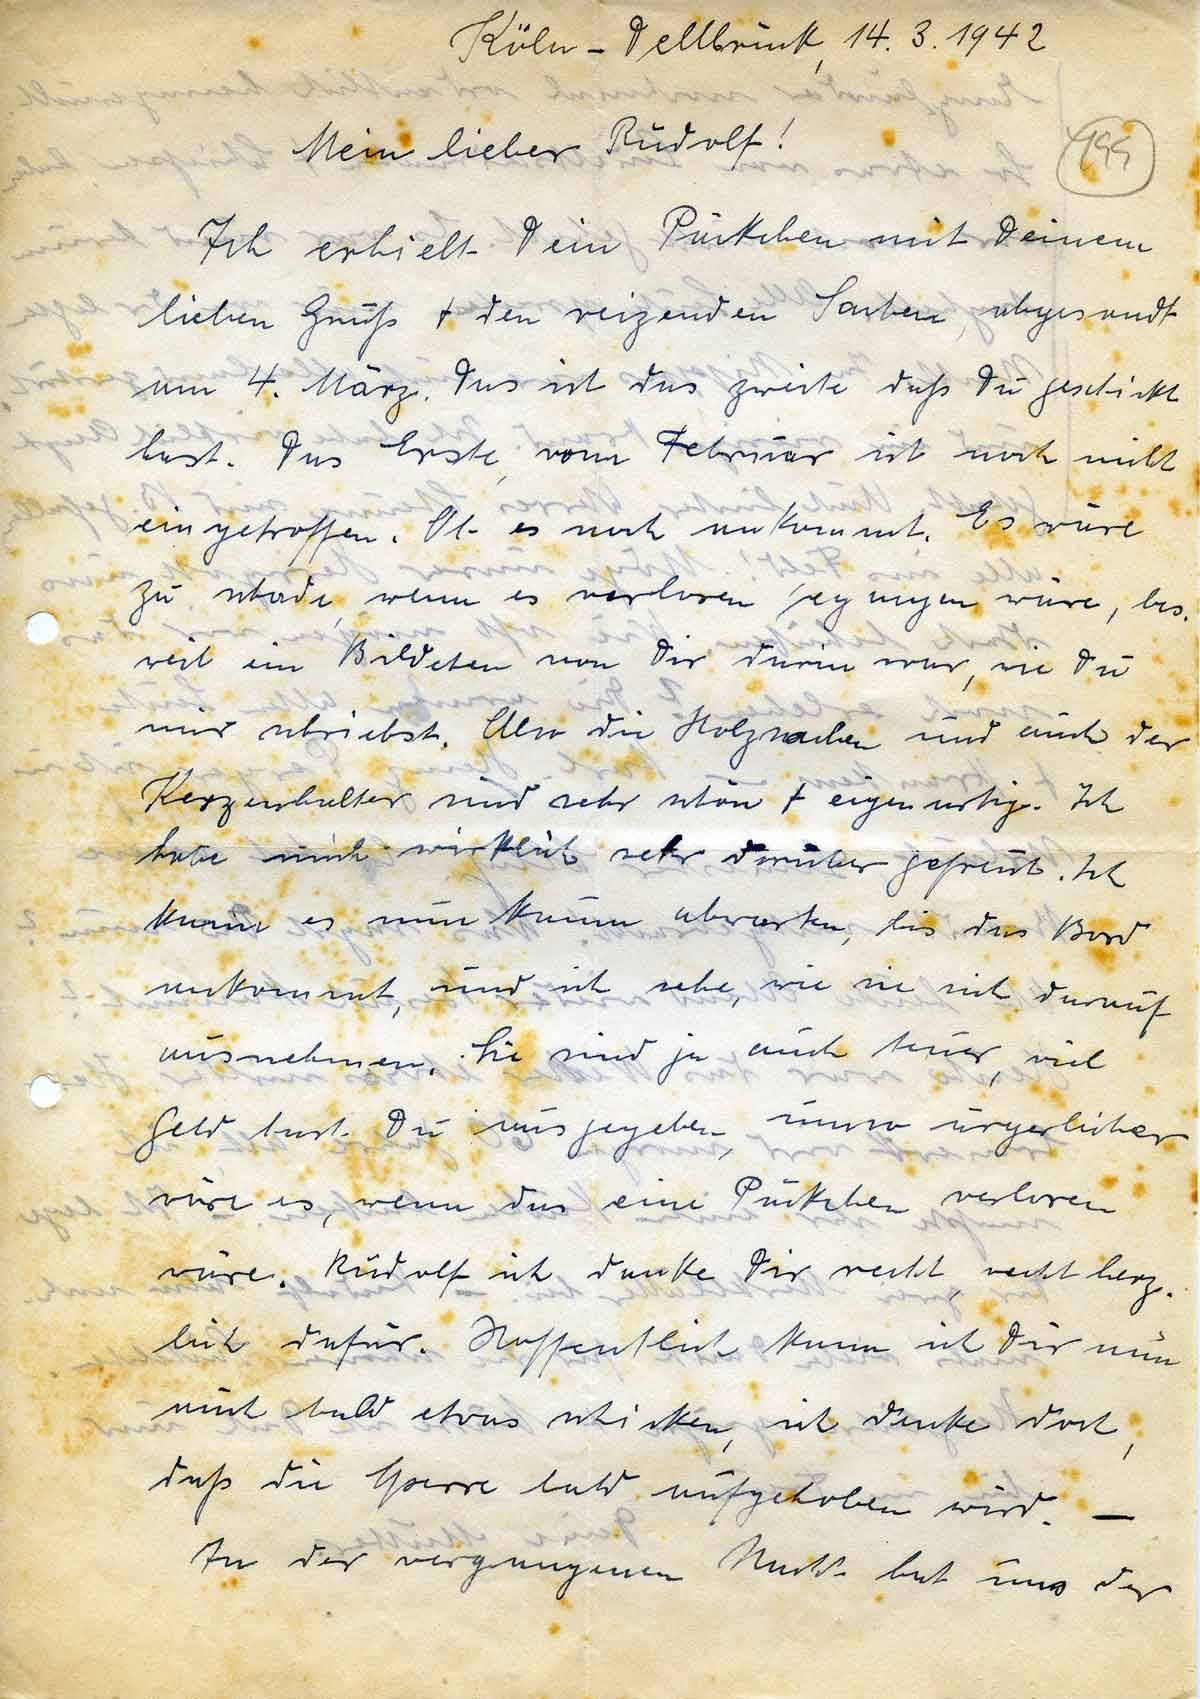 Köln-Dellbrück, 14.3.1942
Mein lieber Rudolf!
199
Ich erhielt Dein Päckchen mit Deinem
lieben Gruß + den reizenden Sachen, abgesandt
am 4. März. Das ist das zweite daß Du geschickt
hast. Das Erste, vom Februar ist noch nicht
eingetroffen. Ob es noch ankommt. Es wäre
zu schade, wenn es verloren gegangen wäre, bes.
weil ein Bildchen von Dir darin war, wie Du
mir schriebst. Also die Holzsachen und auch der
Kerzenhalter sind sehr schön + eigenartig. Ich
habe mich wirklich sehr darüber gefreut. Ich
kann es nun kaum abwarten, bis das Bord
ankommt, und ich sehe, wie sie sich darauf
ausnehmen. Sie sind ja auch teuer, viel
Geld hast Du ausgegeben, umso ärgerlicher
wäre es, wenn das eine Päckchen verloren
wäre. Rudolf ich danke Dir recht, recht herz-
lich dafür. Hoffentlich kann ich Dir nun
auch bald etwas schicken, ich denke doch,
daß die Sperre bald aufgehoben wird. —
In der vergangenen Nacht hat uns der